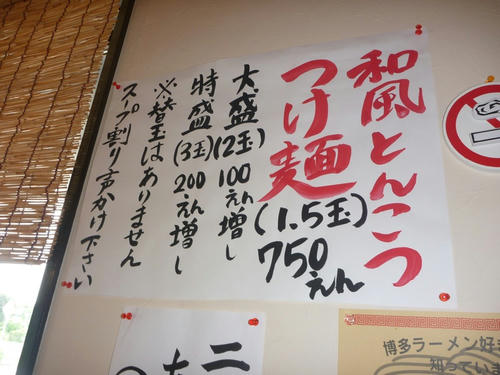 和風とんこつ
つけ麺
(1.5玉)
750えん
大盛(2玉)100えん増し
特盛(3玉)200えん増し
※替玉はありません
スープ割り声かけ下さい
二
博多ラーメン好き
知ってい